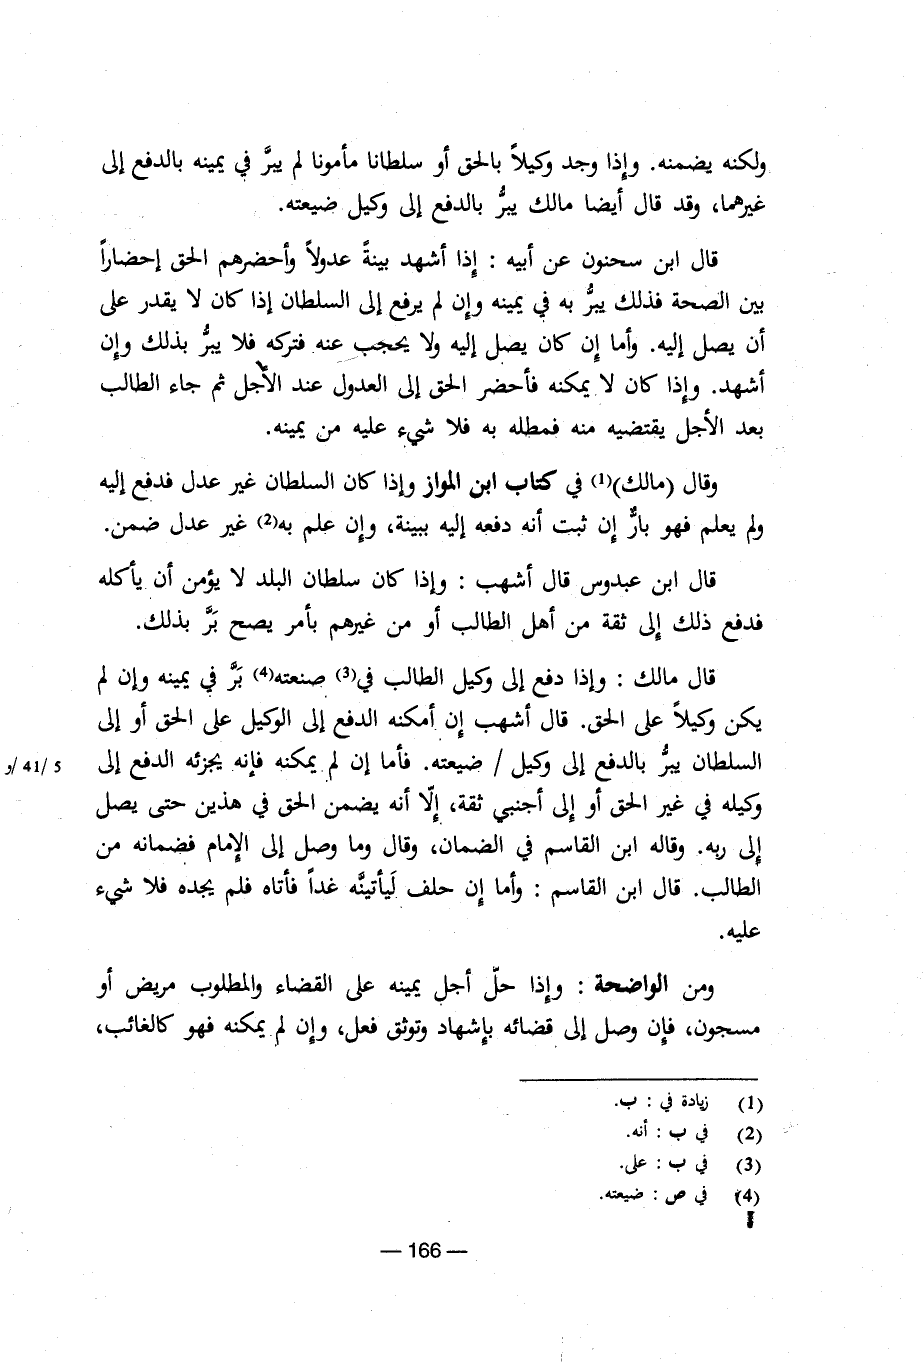 ولكنه يضمنه. وإذا وجد وكيلاً بالحق أو سلطانا مأمونا لم يبرَّ في يمينه بالدفع إلى
غيرهما، وقد قال أيضا مالك يبرُّ بالدفع إلى وكيل ضيعته.
قال ابن سحنون عن أبيه : إذا أشهد بينةً عدولاً وأحضرهم الحق إحضاراً
بين الصحة فذلك يبرُّ به في يمينه وإن لم يرفع إلى السلطان إذا كان لا يقدر على
أن يصل إليه. وأما إن كان يصل إليه ولا يحجب عنه فتركه فلا يبرُّ بذلك وإن
أشهد. وإذا كان لا يمكنه فأحضر الحق إلى العدول عند الأجل ثم جاء الطالب
بعد الأجل يقتضيه منه فمطله به فلا شيء عليه من يمينه.
وقال (مالك)(1) في كتاب ابن المواز وإذا كان السلطان غير عدل فدفع إليه
ولم يعلم فهو بارٌّ إن ثبت أنه دفعه إليه ببينة، وإن علم به(2) غير عدل ضمن.
قال ابن عبدوس قال أشهب : وإذا كان سلطان البلد لا يؤمن أن يأكله
فدفع ذلك إلى ثقة من أهل الطالب أو من غيرهم بأمر يصح بَرَّ بذلك.
قال مالك : وإذا دفع إلى وكيل الطالب في(3) صنعته(4) بَرَّ في يمينه وإن لم
يكن وكيلاً على الحق. قال أشهب إن أمكنه الدفع إلى الوكيل على الحق أو إلى
السلطان يبرُّ بالدفع إلى وكيل / ضيعته. فأما إن لم يمكنه فإنه يجزئه الدفع إلى
5 /41 /و
وكيله في غير الحق أو إلى أجنبي ثقة، إلّا أنه يضمن الحق في هذين حتى يصل
إلى ربه. وقاله ابن القاسم في الضمان، وقال وما وصل إلى الإمام فضمانه من
الطالب. قال ابن القاسم : وأما إن حلف لَيأتينَّه غداً فأتاه فلم يجده فلا شيء
عليه.
ومن الواضحة : وإذا حلّ أجل يمينه على القضاء والمطلوب مريض أو
مسجون، فإن وصل إلى قضائه بإشهاد وتوثق فعل، وإن لم يمكنه فهو كالغائب،
(1) زيادة في : ب.
(2) في ب : أنه.
(3) في ب : على.
(4) في ص : ضيعته.
— 166 —